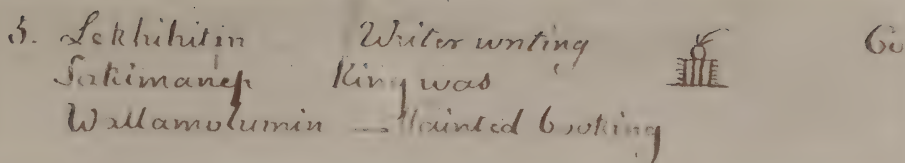 3. Lekhihitin Writer writing
Sakimanep King was
Wallamolumin — Painted booking